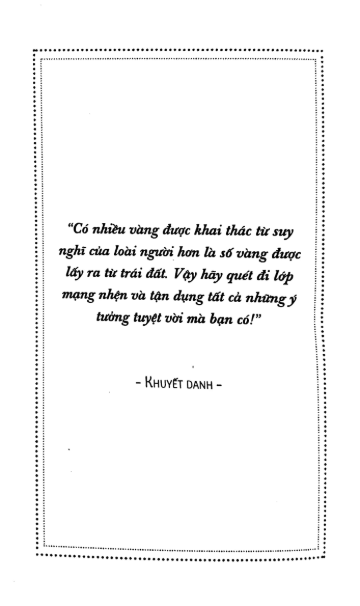 "Có nhiều vàng được khai thác từ suy
nghĩ của loài người hơn là số vàng được
lấy ra từ trái đất. Vậy hãy quét đi lớp
mạng nhện và tận dụng tất cả những ý
tưởng tuyệt vời mà bạn có!"
- KHUYẾT DANH -